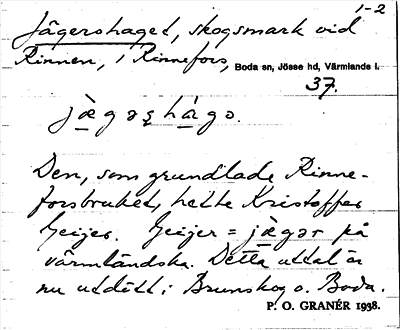 1-2
Jägershaget, skogsmark vid
Rinnen, i Rinnefors, Boda sn, Jösse hd, Värmlands l.
37.
jægəʂhágə.
Den, som grundlade Rinne-
forsbruket, hette Kristoffer
Geijer. Geijer = jægər på
värmländska. Detta uttal är
nu utdött i Brunskog o. Boda.
P. O. GRANÉR 1938.